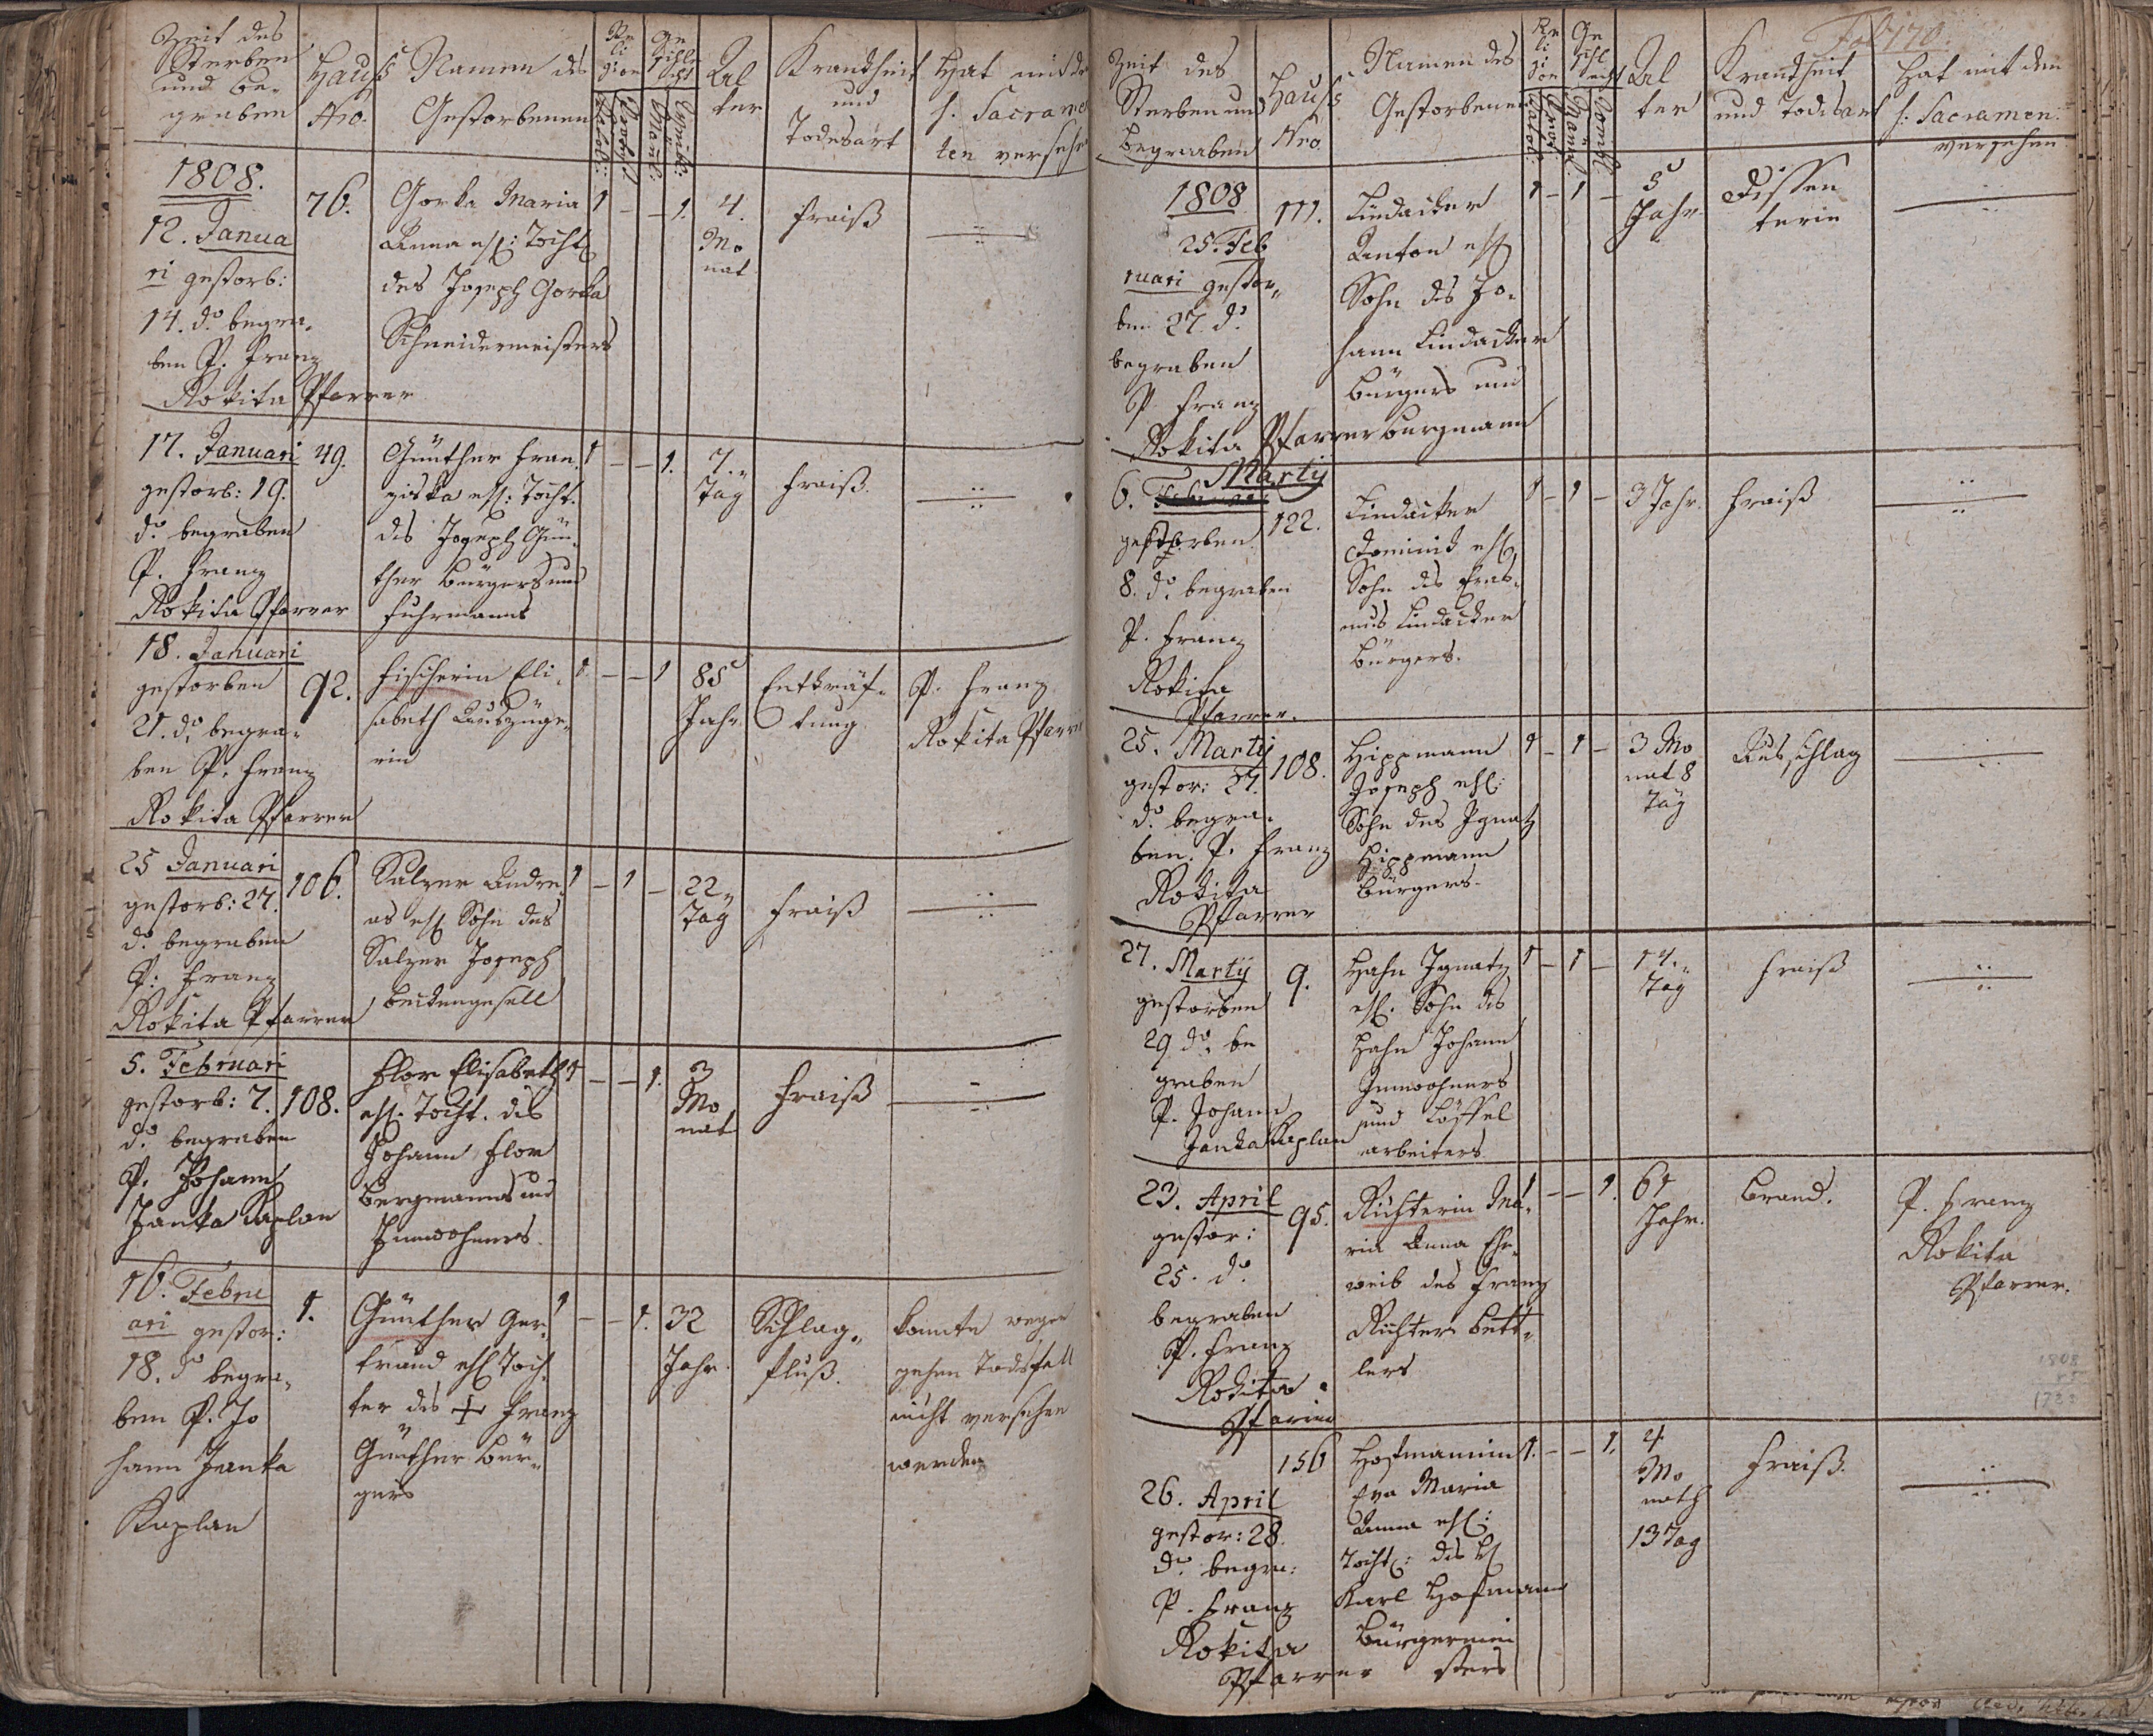 Zeit des
Sterben
und be-
graben
Hauß
Nro.
Namen des
Gestorbenen
Re
li
gion
Kathol:
Ge
schle
cht
Mänl:
Weibl:
Al
ter
Krankheit
und
Todesart
Hat mit d
h. Sacrame
ten versehe
1808.
12. Janua
ri gestorb:
14. do begra-
ben P. Franz
Rokita Pfarrer
76.
Gorka Maria
Anna ehl: Tocht
des Joseph Gorka
Schneidermeisters
1 – – 1.
4.
Mo
nat
Fraiß
17. Januari
gestorb: 19.
do begraben
P. Franz
Rokita Pfarrer
49.
Günther Fran-
ziska ehl: Tocht.
des Joseph Gün-
ther bürgers und
Fuhrmanns
1 – – 1.
7.
Täg
Fraiß.
18. Januari
gestorben
21. do begra-
ben P. Franz
Rokita Pfarrer
92.
Fischerin Eli-
sabeth Auszüge-
rin
1. – – 1
85
Jahr
Entkräf-
tung
P. Franz
Rokita Pfarre
25 Januari
gestorb: 27.
do begraben
P: Franz
Rokita Pfarrer
106.
Salzer Andre-
as ehl Sohn des
Salzer Joseph
beckengesell
1 – 1 –
22
Täg
Fraiß
5. Februari
gestorb: 7.
do begraben
P. Johann
Janka Kaplan
108.
Flor Elisabeth
ehl. Tocht. des
Johann Flor
Bergmanns und
Innwohners.
1 – – 1.
3
Mo
nat
Fraiß
16. Febru
ari gestor:
18. do begra-
ben P. Jo
hann Janka
Kaplan
1.
Günther Ger-
traud ehl Toch
ter des + Franz
Günther bür-
gers
1 – – 1.
32
Jahr.
Schlag-
fluß.
konnte wegen
gehen Todsfall
nicht versehen
werden
Fol 170.
Zeit des
Sterben und
begraaben
Hauß
Nro.
Namen des
Gestorbenen
Re
li
gi
on
Kathol:
Ge
schl
echt
Mänl.
Weibl.
Al
ter
Krankheit
und Todesart
Hat mit den
h: Sacramen:
versehen
1808
25. Feb
ruari gestor-
ben 27. do
begraben
P. Franz
Rokita Pfarrer
111.
Lindacker
Anton ehl
Sohn des Jo-
hann Lindacker
bürgers und
burgmann
1 – 1 –
5
Jahr
Dissen
terie
Martij
6.
gestorben
8. do begraben
P. Franz
Rokita
Pfarrer.
122.
Lindacker
Dominik ehl
Sohn des Eras-
mus Lindacker
bürgers.
1 – 1 –
3 Jahr.
Fraiß
25. Martij
gestor: 27.
do begra-
ben. P. Franz
Rokita
Pfarrer
108.
Hippmann
Joseph ehl:
Sohn des Ignatz
Hippmann
bürgers.
1 – 1 –
3 Mo
nat 8
Täg
Ausschlag
27. Martij
gestorben
29 do. be
graben
P. Johann
Janka Kaplan
9.
Hahn Ignatz
ehl. Sohn des
Hahn Johann
Innwohners
und Löffel
arbeiters
1 – 1 –
14.
Täg
Fraiß
23. April
gestor:
25. do.
begraben
P. Franz
Rokita
Pfarrer
95.
Richterin Ma-
ria Anna Ehe-
weib des Franz
Richter bett-
lers
1 – – 1.
61
Jahr.
Brand.
P. Franz
Rokita
Pfarrer.
1808
26. April
gestor: 28.
do. begra:
P. Franz
Rokita
Pfarrer
156
Hofmannin
Eva Maria
Anna ehl:
Tochtl: des H
Karl Hofmann
Bürgermei
sters
1. – – 1.
4
Mo
nath
13 Tag
Fraiß.